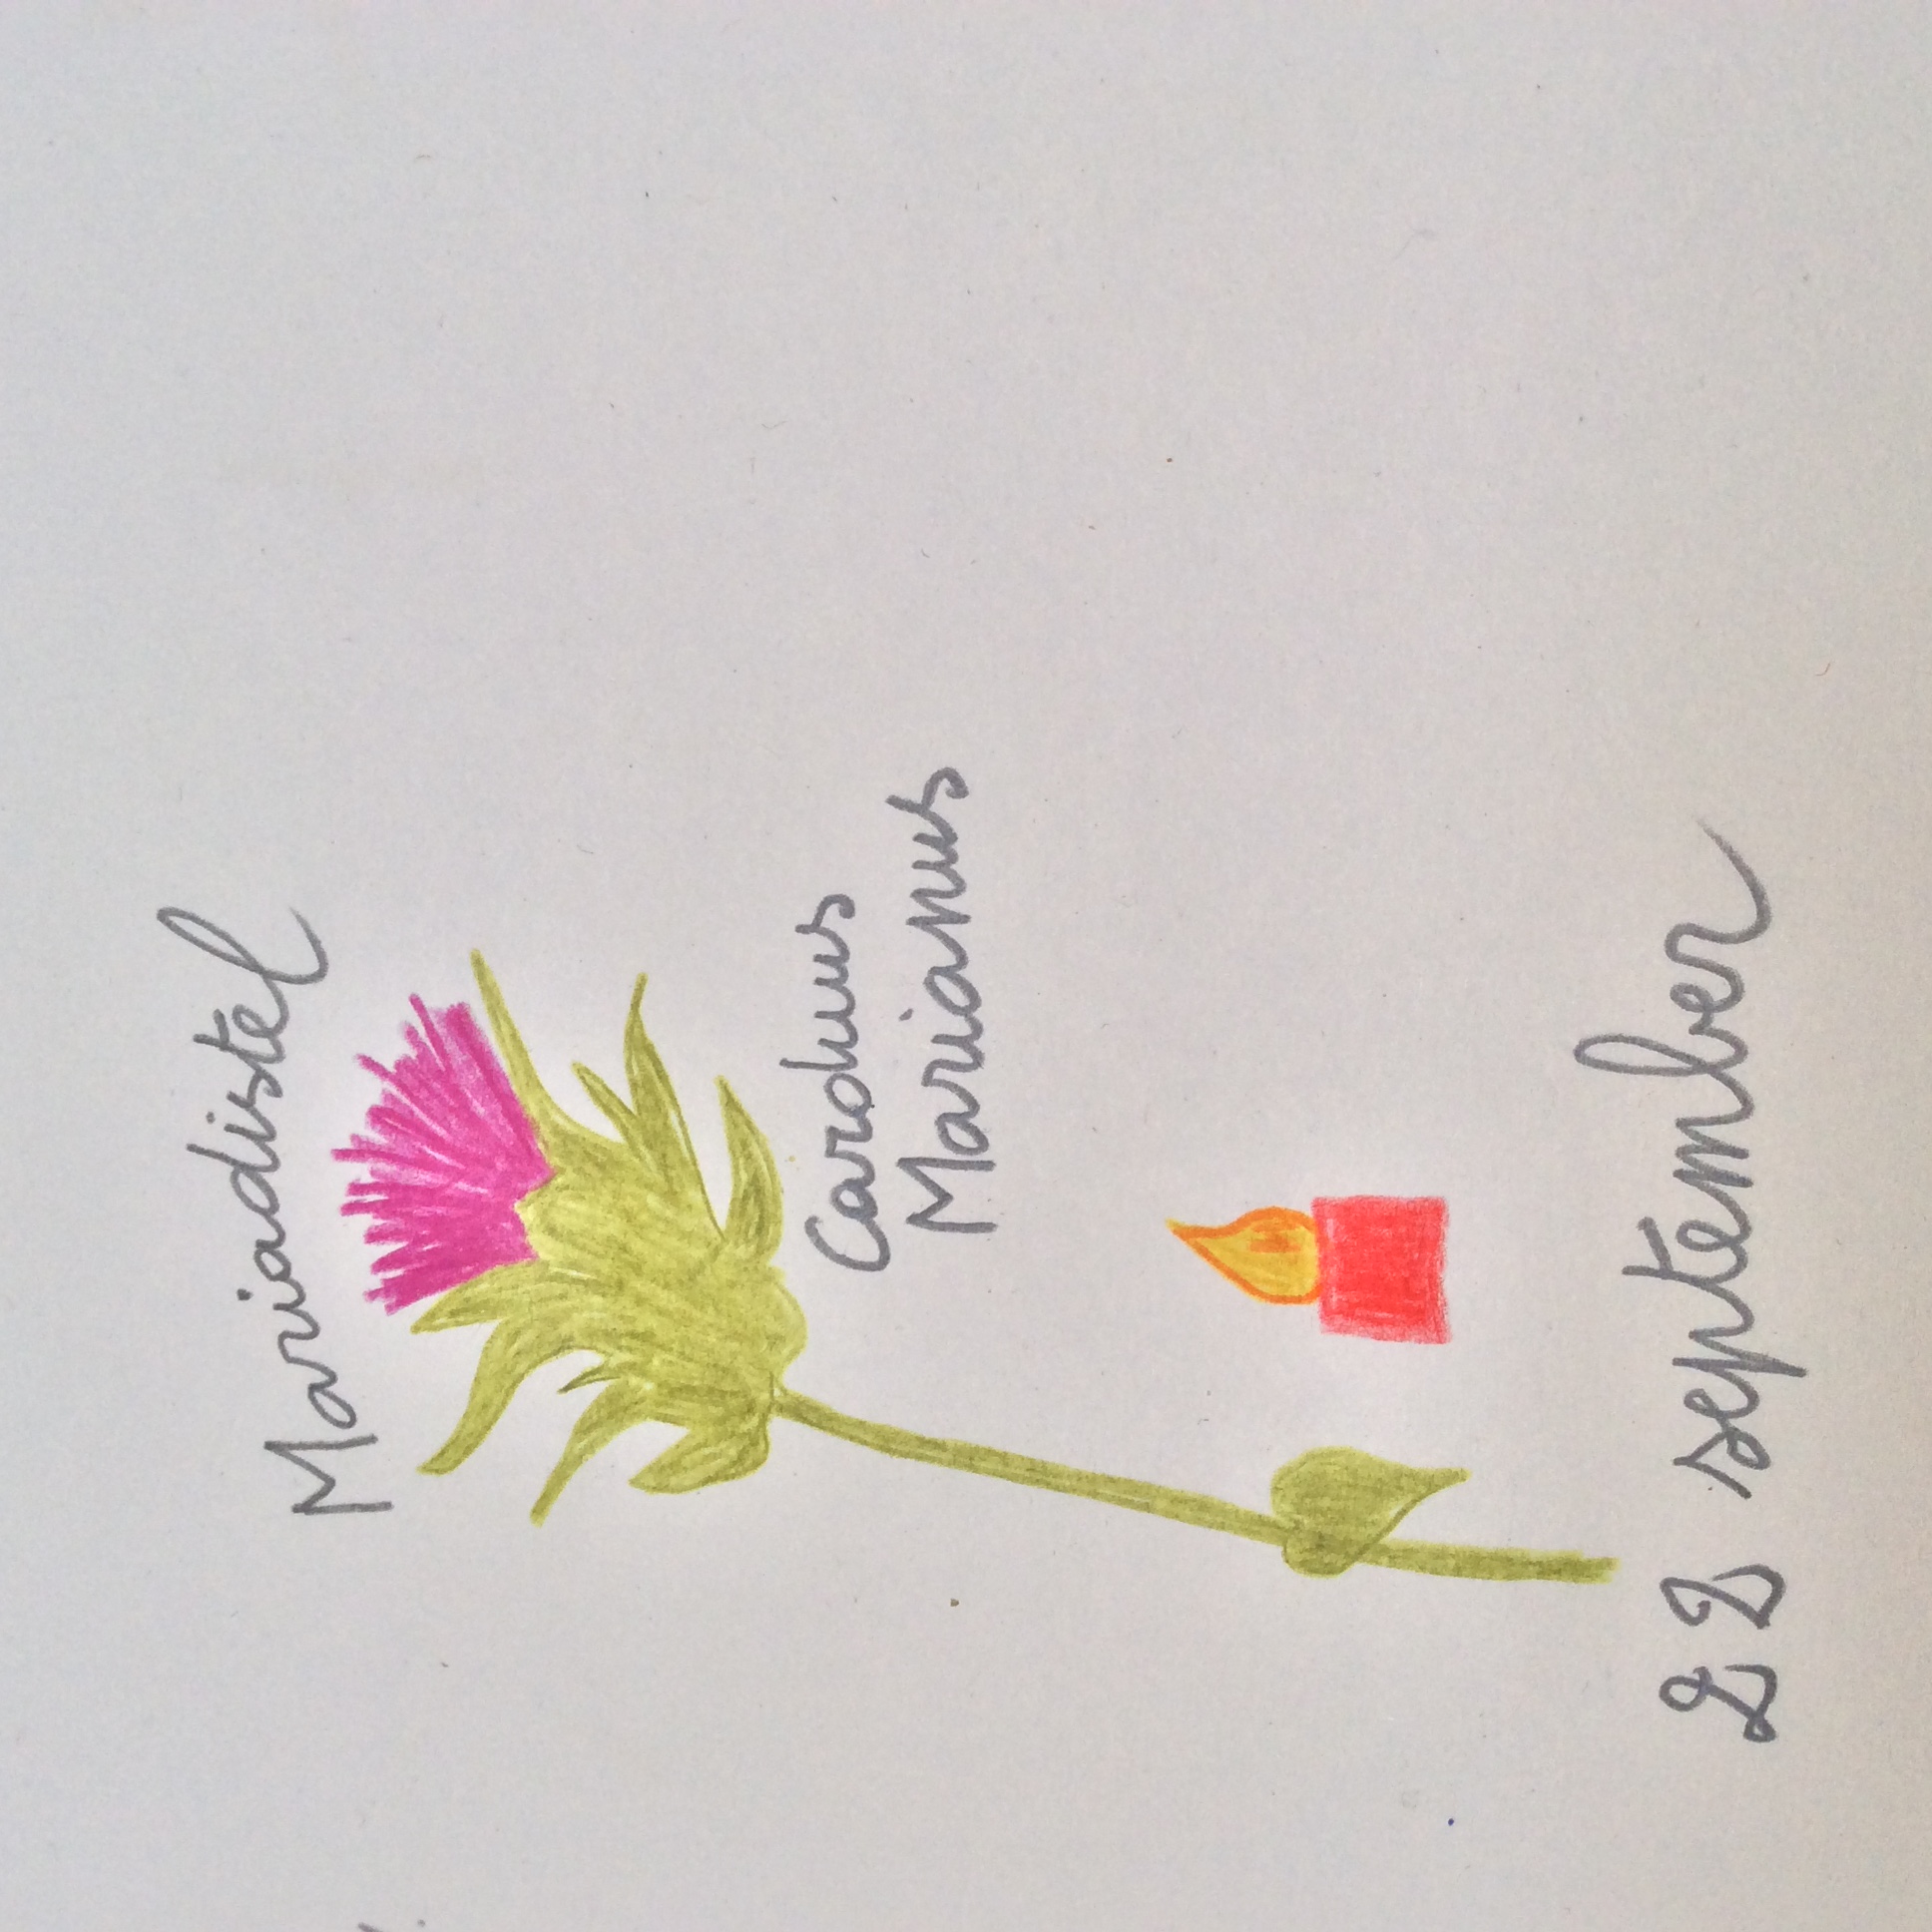 Mariadistel
Carduus
Marianus
22 september